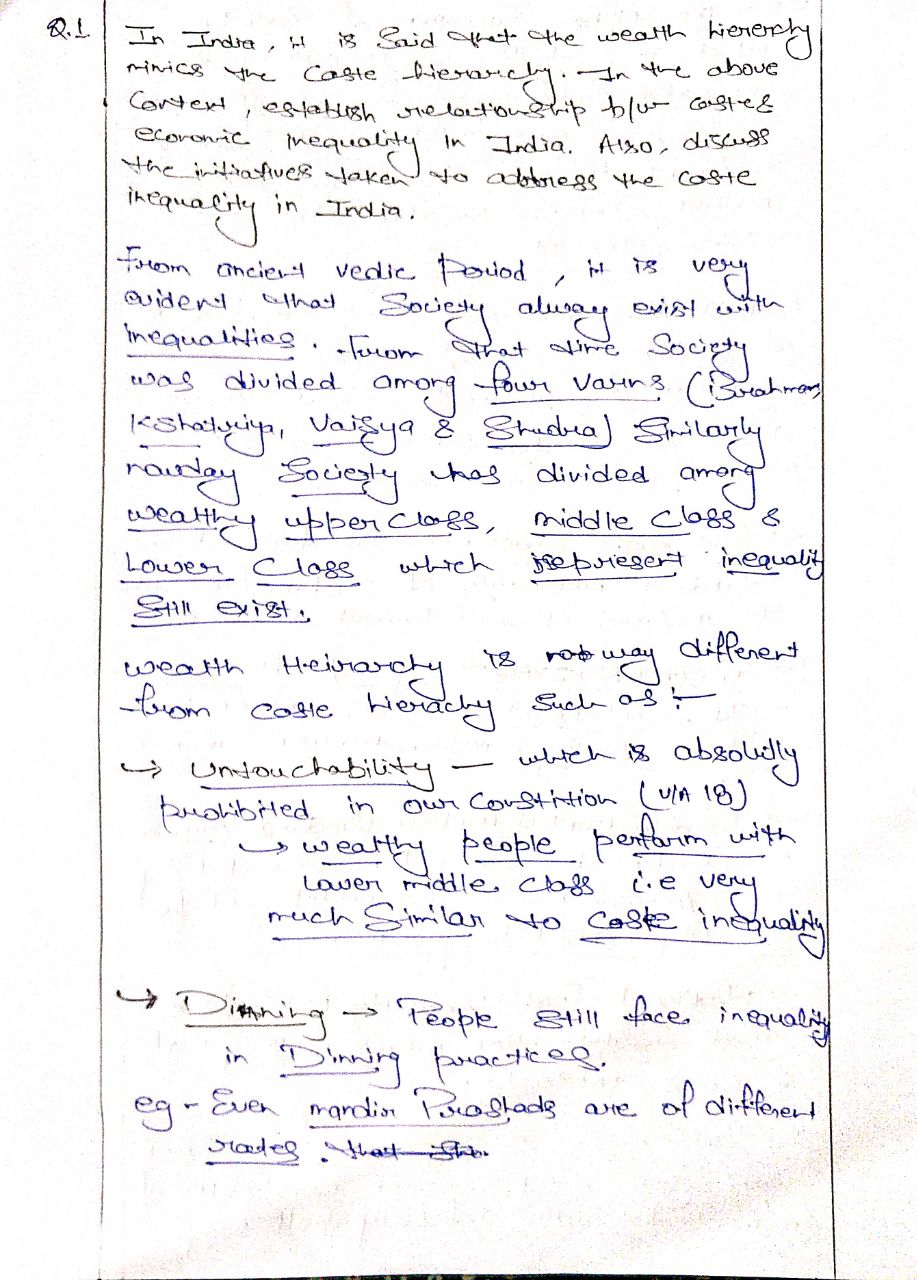 Q.1 In India, it is said that the wealth hiererchy
mimics the caste hierarchy. In the above
Context, establish relationship b/w caste &
economic inequality in India. Also, discuss
the initiatives taken to address the caste
inequality in India.
From ancient vedic Period, it is very
evident that Society alway exist with
inequalities. From that time Society
was divided among four varns (Brahman,
Kshatriya, Vaisya & Shudra) Similarly
nowday Society has divided among
wealthy upper class, middle class &
Lower Class which represent inequality
Still exist.
wealth Heirarchy is way different
from caste hierachy Such as :-
→ Untouchability — which is absolutly
prohibited in our Constitution (U/A 18)
→ wealthy people perform with
Lower middle class i.e very
much Similar to Caste inequality
→ Dinning → People still face inequality
in Dinning practices.
eg - Even mandir Prashads are of different
rates.